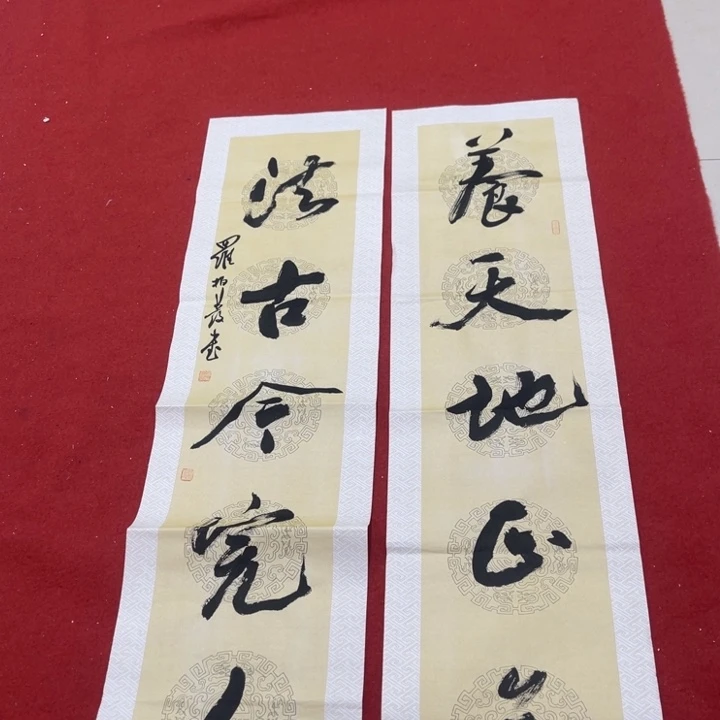 養天地正
法古今完
羅 書